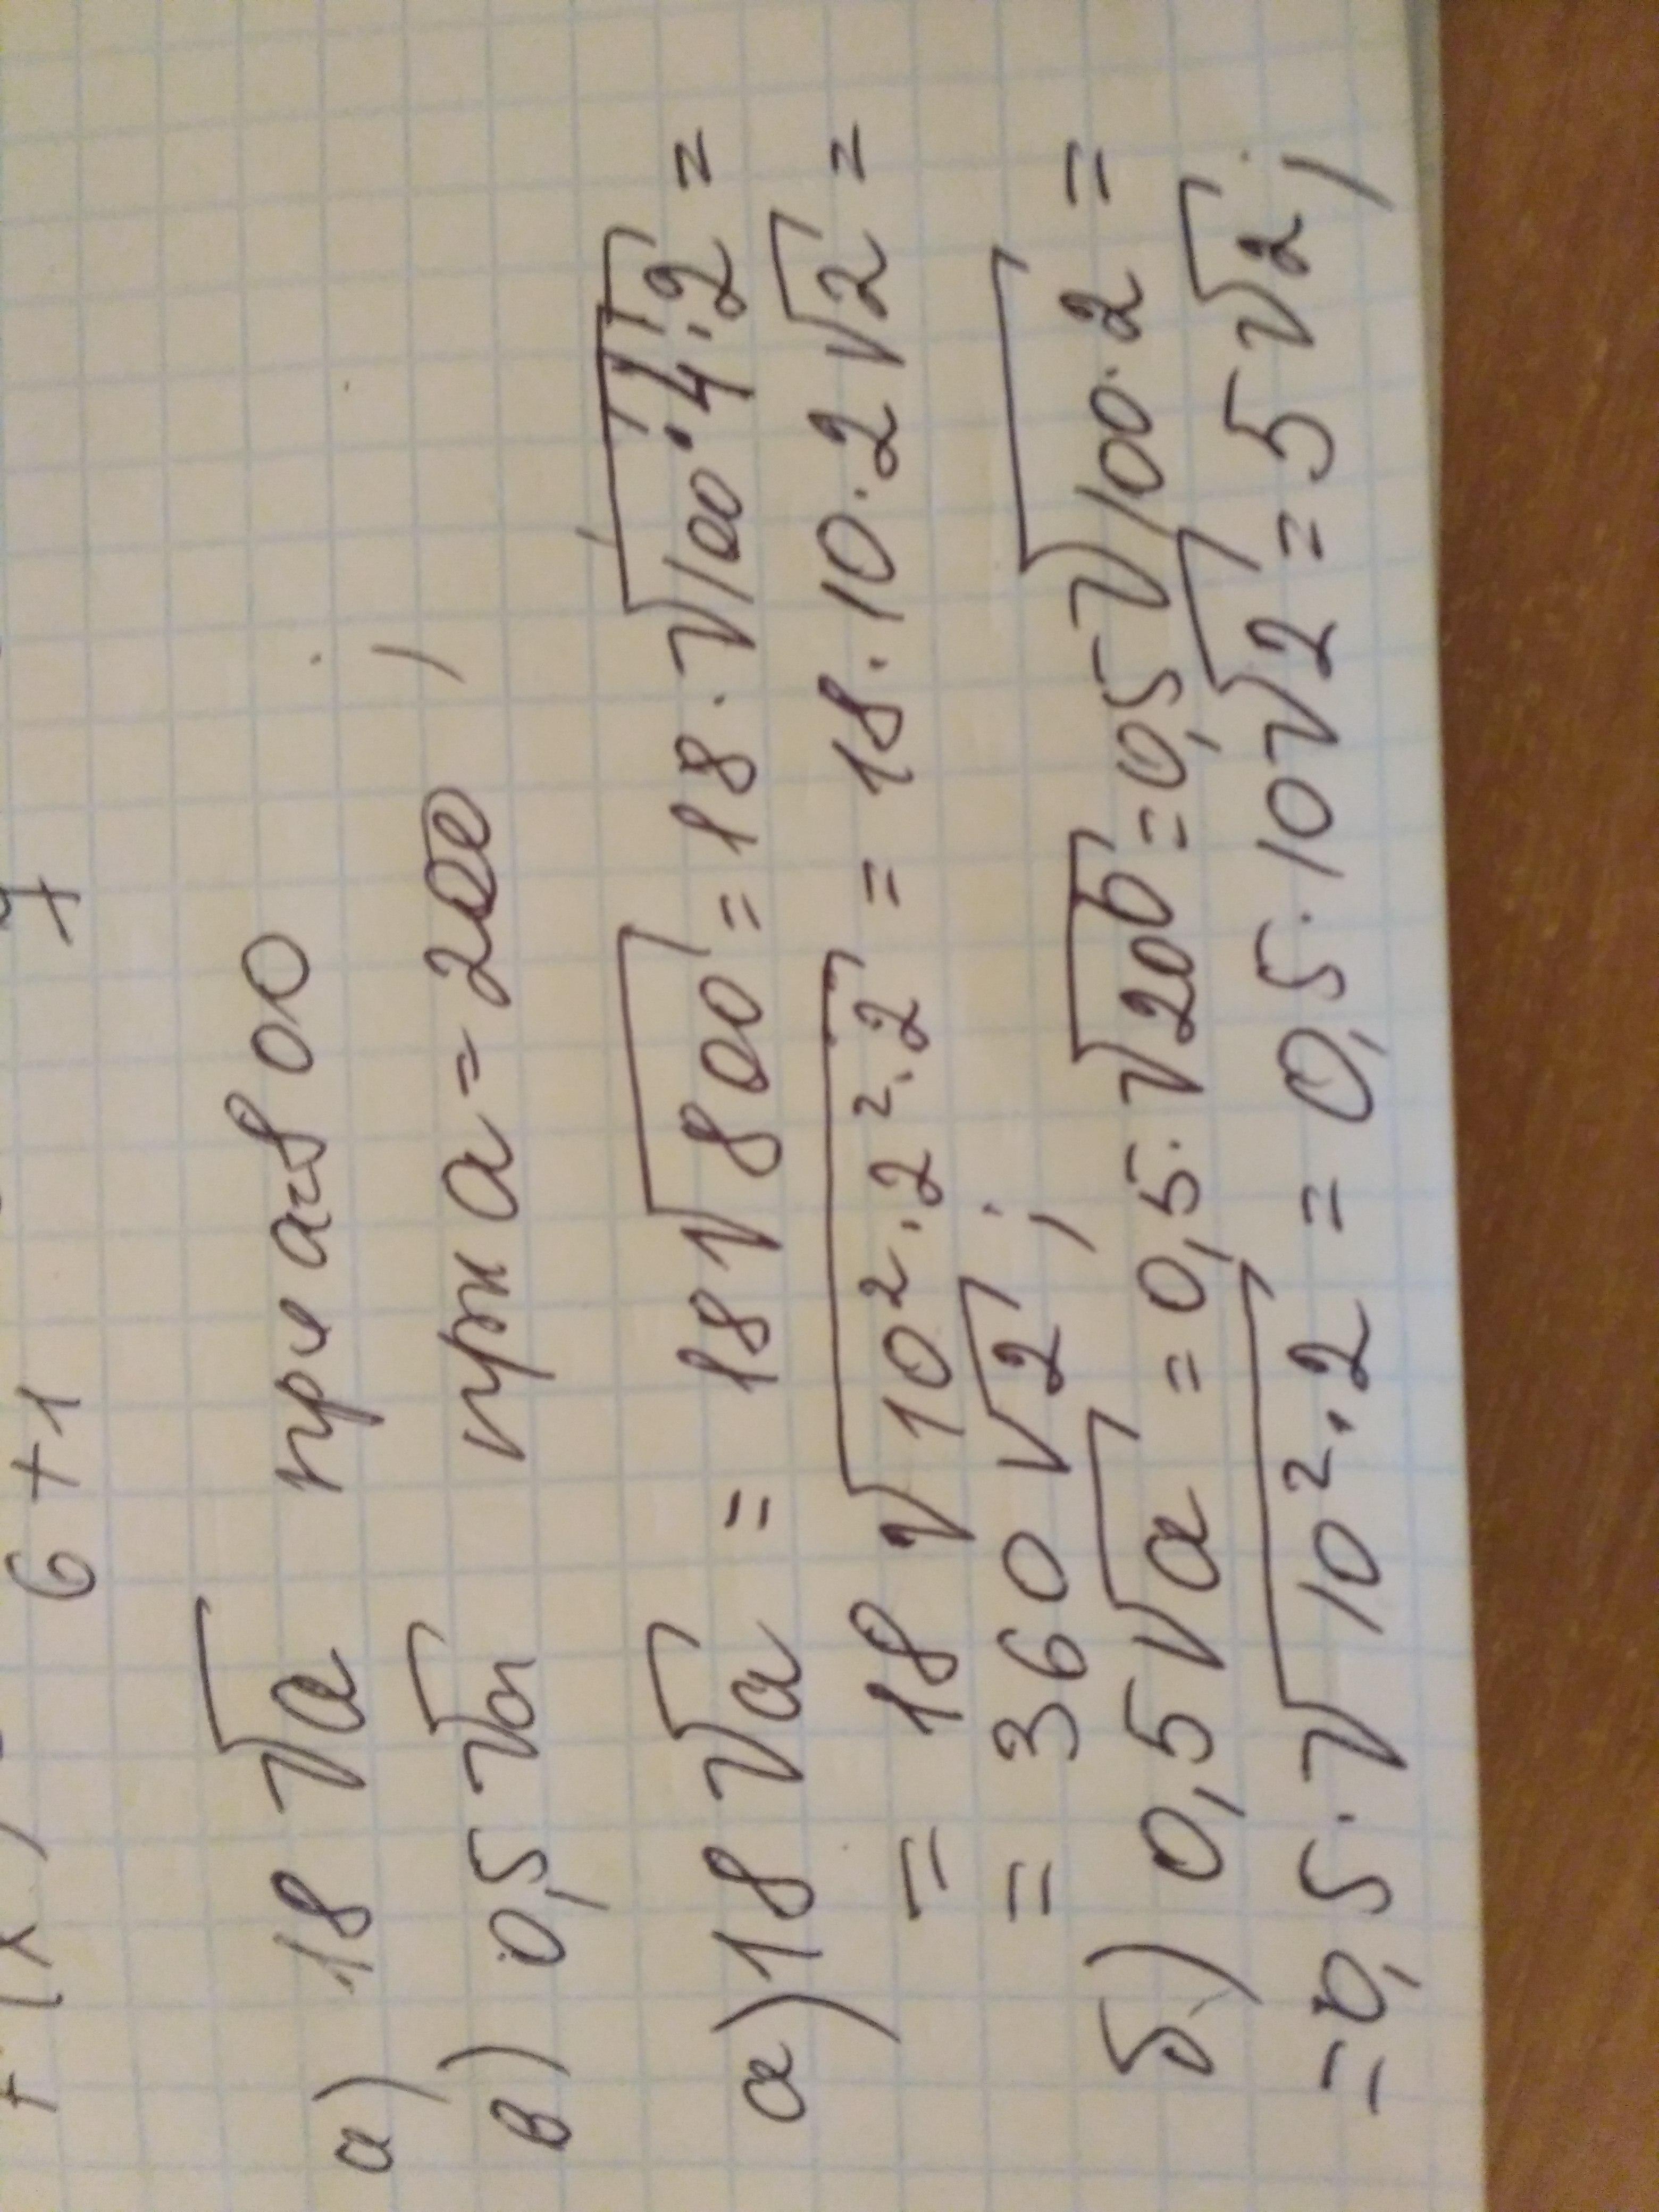 6+1
а) 18√a при a=800
в) 0,5√a при a=200;
а) 18√a = 18√800 = 18·√100·4·2 =
= 18√10²·2²·2 = 18·10·2√2 =
= 360√2;
б) 0,5√a = 0,5·√200 = 0,5√100·2 =
= 0,5·√10²·2 = 0,5·10√2 = 5√2;